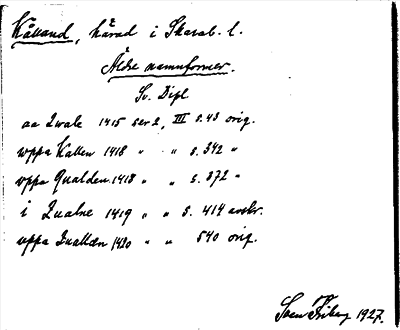 Kålland, härad i Skarab. l.
Äldre namnformer.
Sv. Dipl
aa Qwale 1415 ser 2, III s. 43 orig.
wppa Kallen 1418 " " s. 342 "
vppa Qualden 1418 " " s. 372 "
i Qualne 1419 " " s. 414 avskr.
uppa Quallan 1420 " " 540 orig.
Sven Friberg 1927.